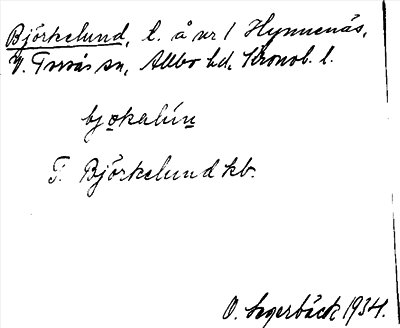 Björkelund, t. å nr 1 Hynnenäs,
V. Torsås sn, Allbo hd, Kronob. l.
bjo̲kalún̲
F. Björkelund kb.
O. Lagerbäck 1934.